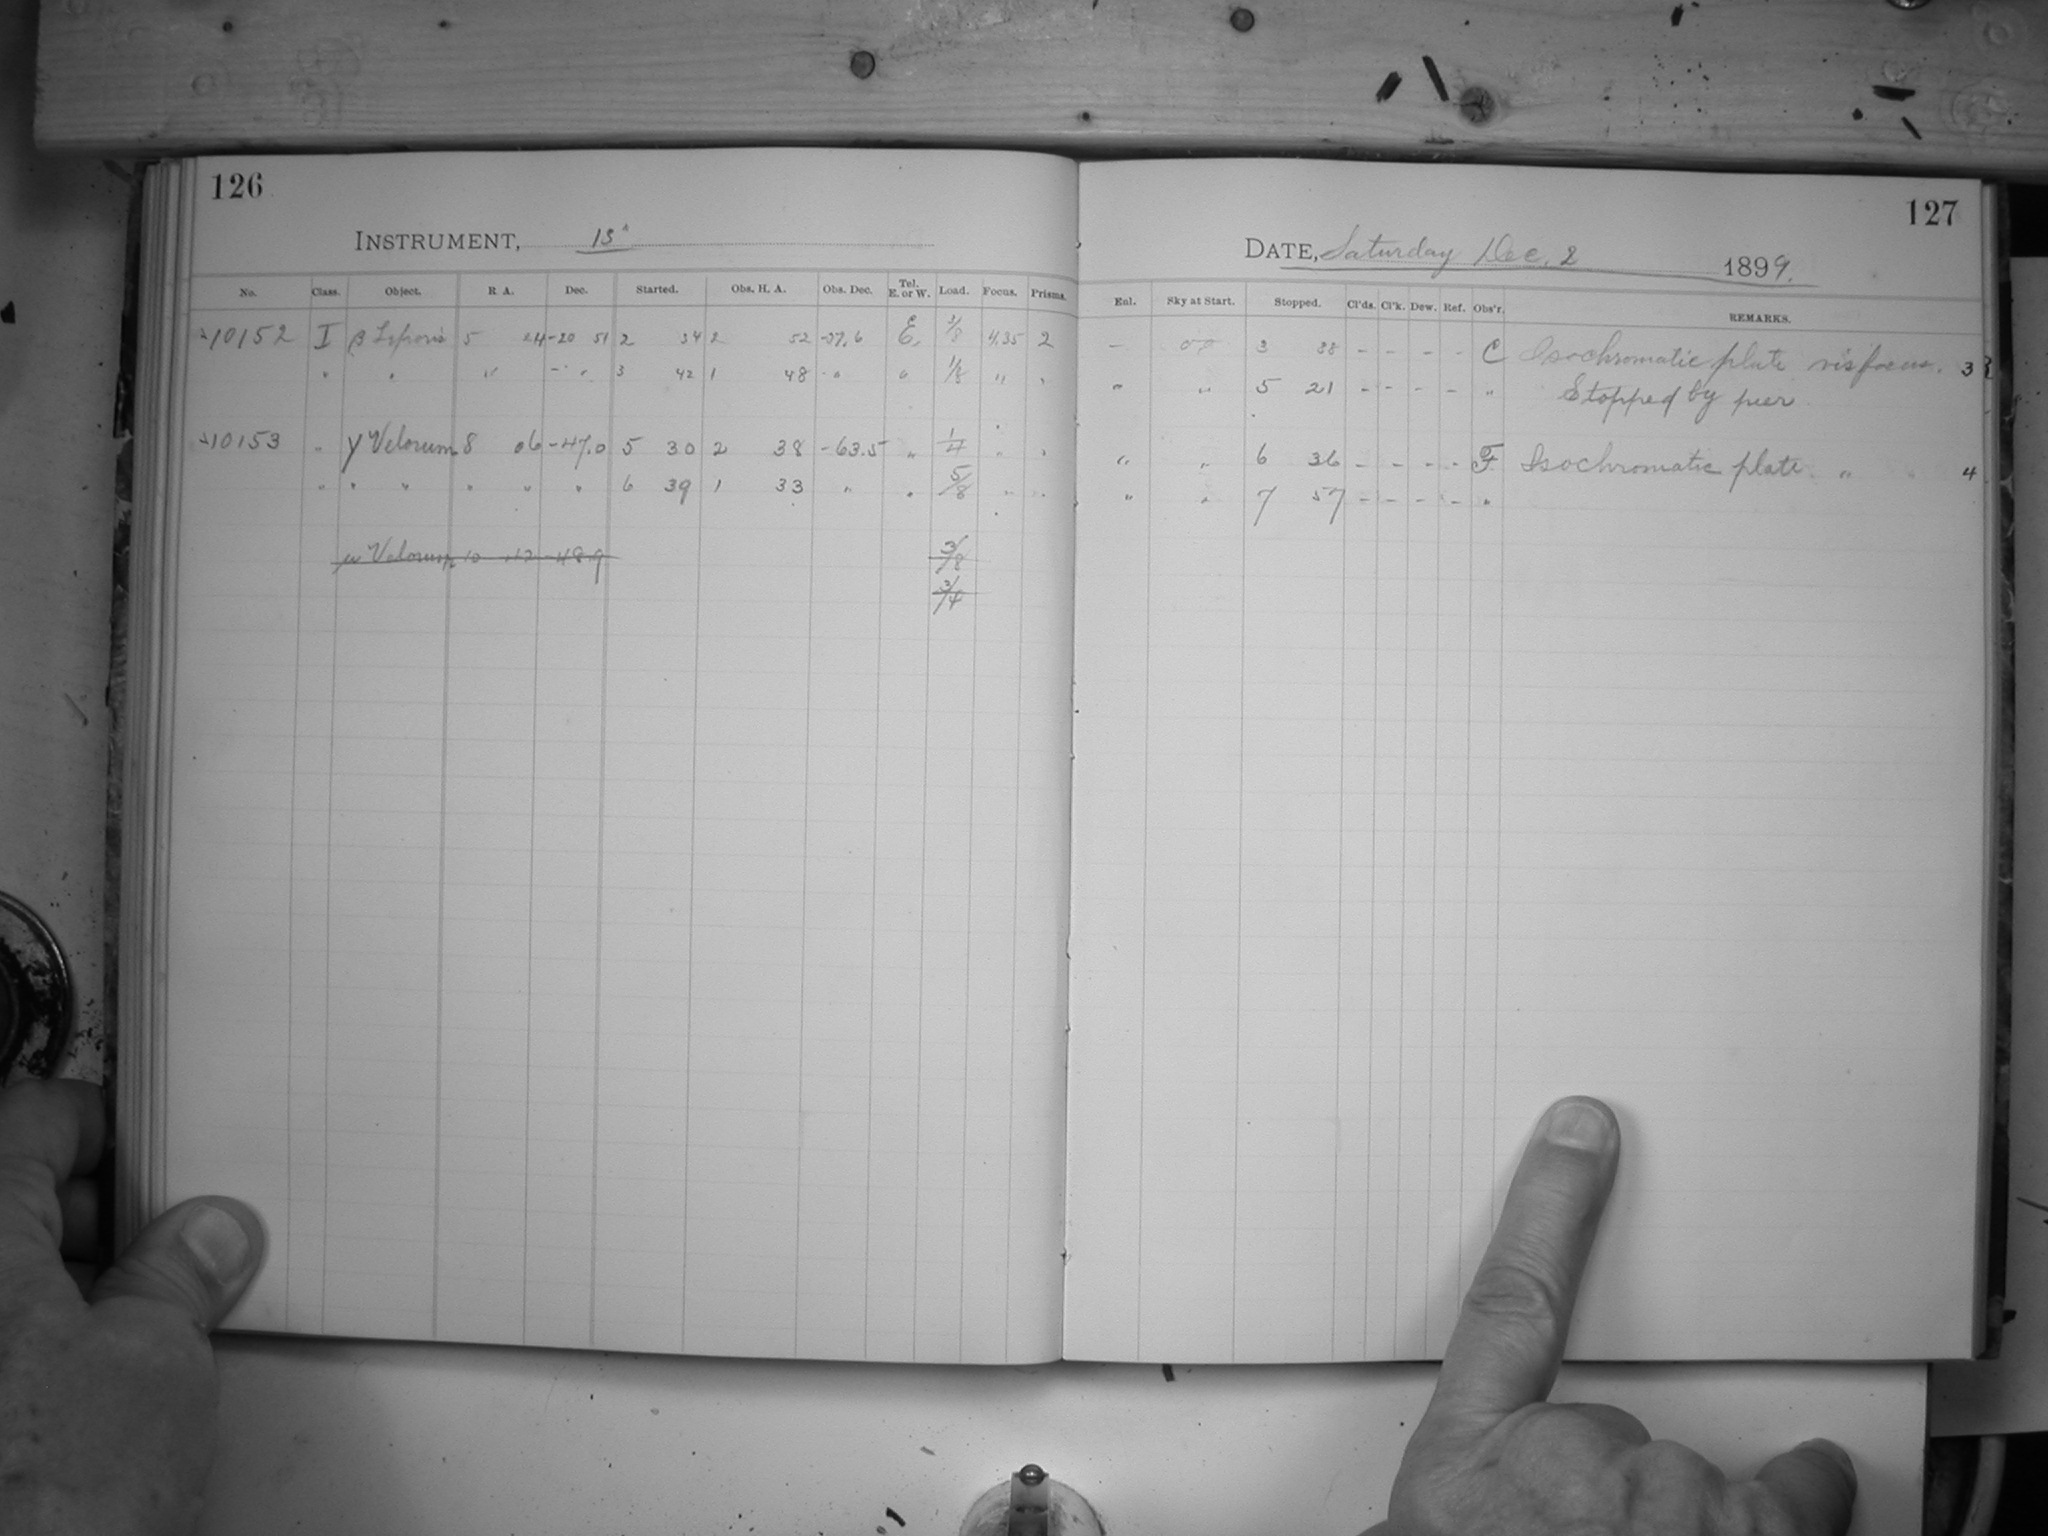 126
INSTRUMENT, 13"
No. Class. Object. R. A. Dec. Started. Obs. H. A. Obs. Dec. Tel. E. or W. Load. Focus. Prisms.
10152 I β Leporis 5 24 -20 51 2 34 2 52 -37.6 E. 3/8 4.35 2
" " " - " " 3 42 1 48 - " " 1/8 " "
10153 " γ Velorum 8 06 -47.0 5 30 2 38 -63.5 " 1/4 " "
" " " " " " 6 39 1 33 " " 5/8 " "
μ Velorum 10 42 -48.9 3/8
3/4
127
DATE, Saturday Dec. 2 1899.
Enl. Sky at Start. Stopped. Cl'ds. Cl'k. Dew. Ref. Obs'r. REMARKS.
- 3 38 - - - - C Isochromatic plate vis focus. 3
" " 5 21 - - - - " Stopped by pier
" " 6 36 - - - - F Isochromatic plate " 4
" " 7 57 - - - - "